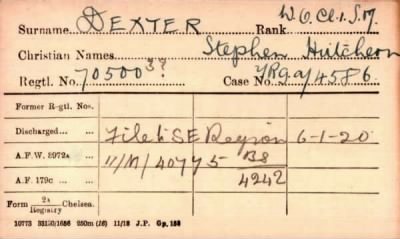 Surname DEXTER Rank W.O.Cl.1.S.M.
Christian Names Stephen Hutcheon
Regtl. No. 70500 3? Case No. 7RGa/4586
Former R-gtl. Nos.
Discharged... ... File to SE Region 6-1-20
A.F.W. 3972A ... 11/M/40775 BS
A.F. 179c. ... ... 4242
Form 2A Registry Chelsea.
10773 33130/1656 250m (16) 11/18 J.P. Gp. 158